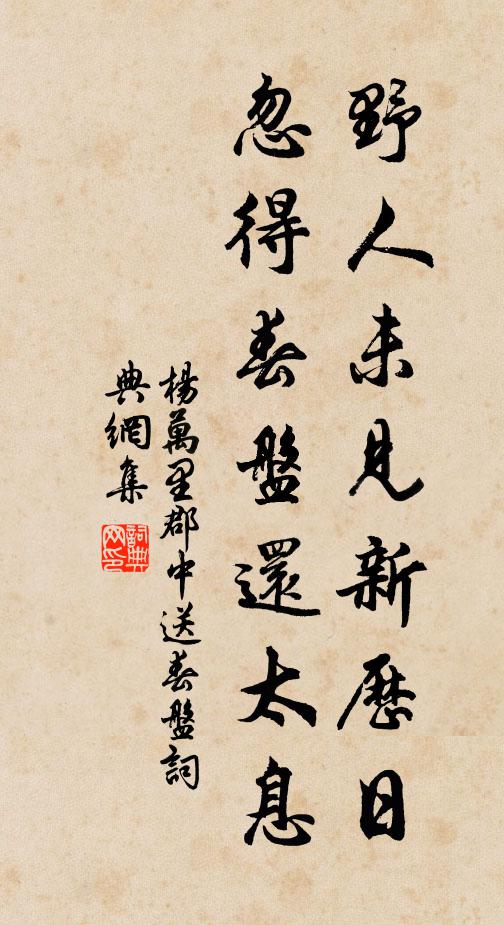 野人未見新曆日
忽得春盤還太息
楊萬里郡中送春盤詞
典網集
詞典網印